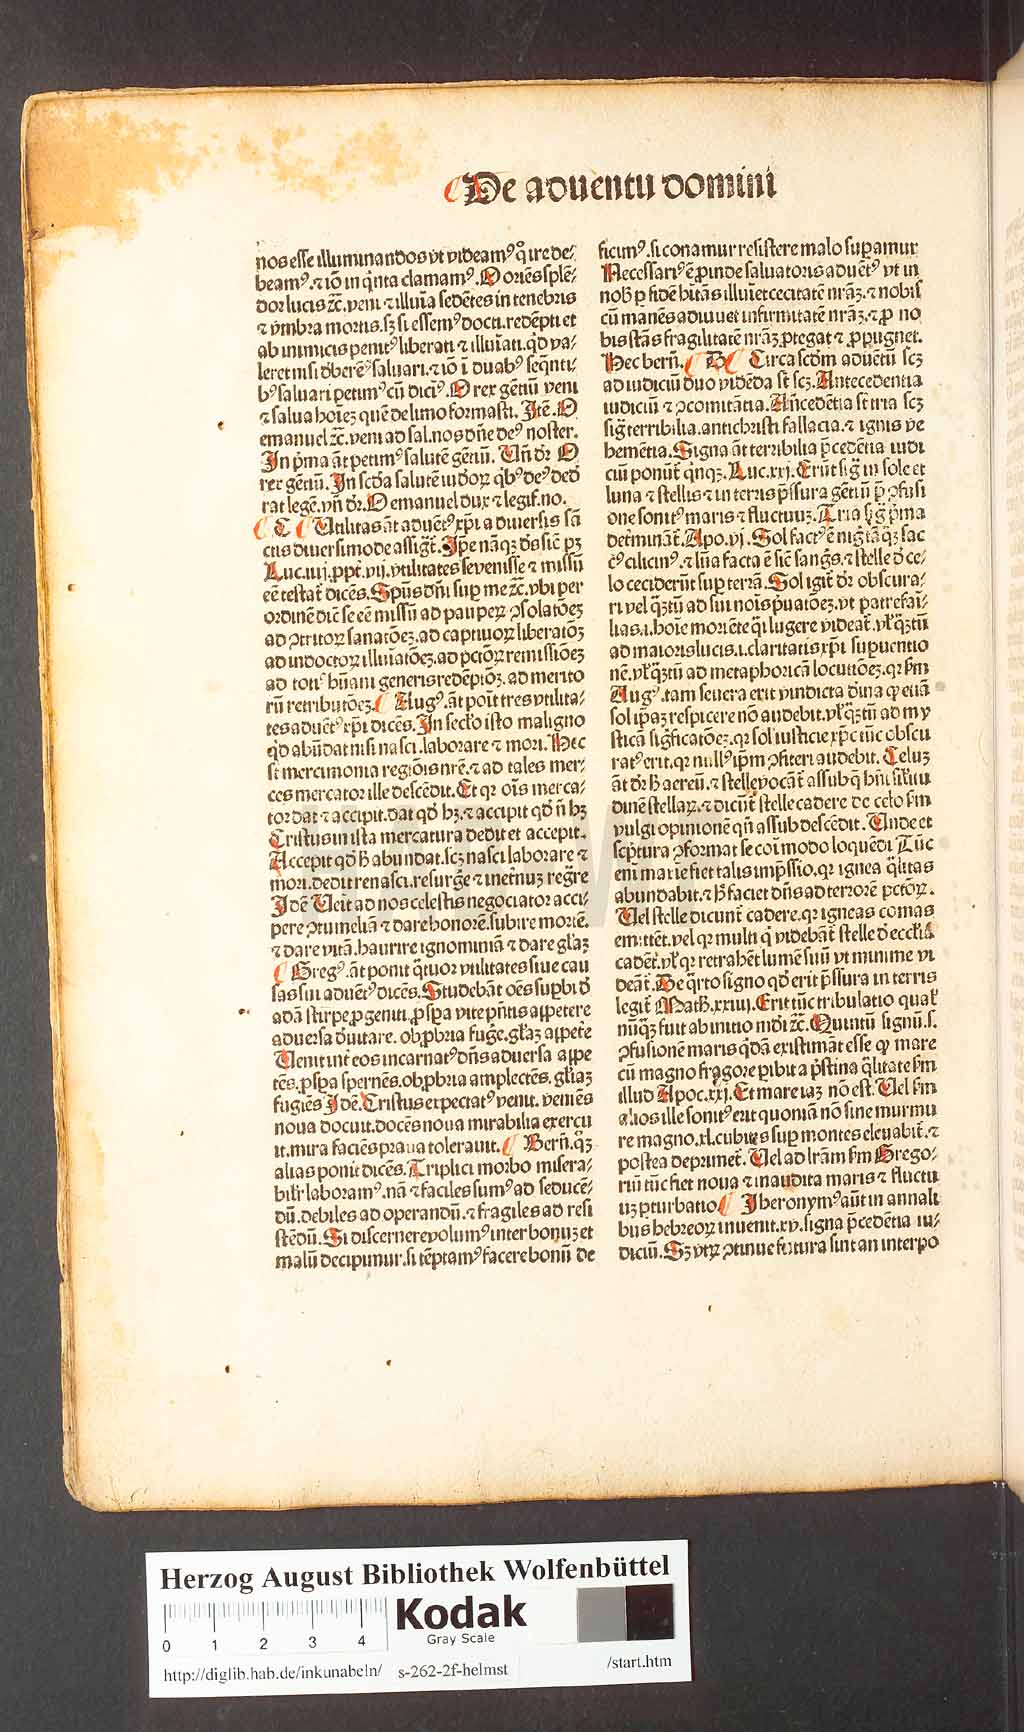 De aduentu domini
nos esse illuminandos vt videamꝰ q̊ ire de⸗
beamꝰ. ⁊ iõ in q̃nta clamamꝰ. O oriẽs splẽ⸗
dor lucis ⁊č. veni ⁊ illuĩa sedẽtes in tenebris
⁊ vmbra mortis. sʒ si essemꝰ docti. redẽpti et
ab inimicis penitꝰ liberati ⁊ illuĩati. qd̾ va⸗
leret nisi d̾berẽꝰ saluari. ⁊ iõ ĩ duabꝰ seq̃nti⸗
bꝰ saluari petimꝰ cũ dicĩꝰ. O rex gẽtiũ veni
⁊ salua hoĩeʒ quẽ de limo formasti. Itẽ. O
emanuel ⁊č. veni ad sal. nos dñe deꝰ noster.
In p̃ma ãt petimꝰ salutẽ gẽtiũ. Vñ dr̃ O
rex gẽtiũ. In scd̾a salutẽ iudorꝝ q̃bꝰ deꝰ ded̾
rat legẽ. vñ dr̃. O emanuel dux ⁊ legif. no.
C Utilitas ãt aduẽtꝰ xp̃i a diuersis sã
ctis diuersimode assigt̃. Ipe nãqʒ dñs sic̃ pʒ
Luc. iiij. ppt̃. vij. vtilitates se venisse ⁊ missũ
eẽ testat̃ dicẽs. Spũs dñi sup me ⁊č. vbi per
ordinẽ dic̃ se eẽ missũ ad pauperꝝ ꝯsolatõeʒ
ad ꝯtritorꝝ sanatõeʒ. ad captiuorꝝ liberatõʒ
ad indoctorꝝ illuĩatõeʒ. ad pctõrꝝ remissiõeʒ
ad totiꝰ hũani generis redẽptiõʒ. ad merito
rũ retributõeʒ. Augꝰ. ãt poĩt tres vtilita⸗
tes aduẽtꝰ xp̃i dicẽs. In seclo isto maligno
qd̾ abũdat nisi nasci. laborare ⁊ mori. Hec
st̃ mercimonia regiõis nr̃e. ⁊ ad tales mer⸗
ces mercator ille descẽdit. Et qꝛ oĩs merca⸗
tor dat ⁊ accipit. dat qd̾ hʒ. ⁊ accipit qd̾ ñ hʒ
Cristus in ista mercatura dedit et accepit.
Accepit qd̾ h̾ abundat. scʒ nasci laborare ⁊
mori. dedit renasci. resurgẽ ⁊ inet̃nuʒ reg̃re
Idẽ Veĩt ad nos celestis negociator acci⸗
pere ꝯtumeliã ⁊ dare honorẽ. subire mortẽ.
⁊ dare vitã. haurire ignominiã ⁊ dare gl̃aʒ
Gregꝰ. ãt ponit q̃tuor vtilitates siue cau
sas sui aduẽtꝰ dicẽs. Studebãt oẽs supbi d̾
adã stirpe ꝓgeniti. ꝓspa vite pñtis appetere
aduersa d̾uitare. obpbria fugẽ. gl̃aʒ appete
Venit int̃ eos incarnatꝰ dñs aduersa appe
tẽs. ꝓspa spernẽs. obpbria amplectẽs. gl̃iaʒ
fugiẽs Idẽ. Cristus expectatꝰ venit. veniẽs
noua docuit. docẽs noua mirabilia exercu
it. mira faciẽs praua tolerauit. Berñ. q̊ʒ
alias ponit dicẽs. Triplici morbo misera⸗
bilr̃ laboramꝰ. nã ⁊ faciles sumꝰ ad seducẽ⸗
dũ. debiles ad operandũ. ⁊ fragiles ad resi
stẽdũ. Si discernere volumꝰ inter bonuʒ et
malũ decipimur. si tẽptamꝰ facere bonũ de
ficimꝰ. si conamur resistere malo supamur
Necessariꝰ ẽ ꝓinde saluatoris aduẽtꝰ vt in
nob̾ p fidẽ hitãs illuĩet cecitatẽ nr̃aʒ. ⁊ nobis
cũ manẽs adiuuet infirmitatẽ nr̃aʒ. ⁊ ꝓ no
bis stãs fragilitatẽ nr̃aʒ ꝓtegat ⁊ ꝓpugnet.
Hec berñ. B Circa scd̾m aduẽtũ scʒ
ad iudiciũ duo vidẽda st̃ scʒ. Antecedentia
iudiciũ ⁊ ꝯcomitãtia. Añcedẽtia st̃ tria scʒ
sig̃ terribilia. antichristi fallacia. ⁊ ignis ve
hemẽtia. Signa ãt terribilia p̃cedẽtia iudi
ciũ ponũt̃ q̃nqʒ. Luc. xxj. Erũt sig̃ in sole et
luna ⁊ stellis ⁊ in terris p̃ssura gẽtiũ p̃ ꝯfusi
one sonitꝰ maris ⁊ fluctuuʒ. Tria sig̃ p̃ma
det̃minãt̃. Apo. vj. Sol factꝰ ẽ nig̃ tãqʒ sac
cꝰ cilicinꝰ. ⁊ lũa facta ẽ sic̃ sang̃s. ⁊ stelle d̾ ce⸗
lo ceciderũt sup terrã. Sol igit̃ dr̃ obscura⸗
ri vel q̃ʒtũ ad sui nois̃ p̃uatõeʒ. vt patrefaĩ⸗
lias. i. hoĩe moriẽte q̃i lugere videat̃. vl̾ q̃ʒtũ
ad maioris lucis. i. claritatis xp̃i supuentio
nẽ. vl̾ q̃ʒtũ ad metaphoricã locutiõeʒ. qꝛ fm̃
Augꝰ. tam seuera erit vindicta d̾ina qꝙ etiã
sol ip̃aʒ respicere nõ audebit. vl̾ q̃ʒtũ ad my
sticã sig̃ficatõeʒ. qꝛ sol iusticie xp̃c tũc obscu
ratꝰ erit. qꝛ nullꝰ ip̃m ꝯfiteri audebit. Celuʒ
ãt dr̃ h̾ aereũ. ⁊ stelle vocãt̃ assub q̃ hñt sil̃itu
dinẽ stellarꝝ. ⁊ dicũt̃ stelle cadere de celo fm̃
vulgi opinionẽ qñ assub descẽdit. Unde et
scp̃tura ꝯformat se coĩ modo loquẽdi Tũc
eni maxie fiet talis imp̃ssio. qꝛ ignea q̃litas
abundabit. ⁊ h̾ faciet dñs ad terrorẽ pctõrꝝ.
Vel stelle dicunt̃ cadere. qꝛ igneas comas
emittẽt. vel qꝛ multi q̃ videbãt̃ stelle d̾ eccl̾ia
cadẽt. vl̾ qꝛ retrahẽt lumẽ suũ vt minime vi
deãt̃. De q̃rto signo qd̾ erit p̃ssura in terris
legit̃ Math̾. xxiiij. Erit tũc tribulatio qual̾
nũqʒ fuit ab initio mũdi ⁊č. Quintũ signũ. s.
ꝯfusionẽ maris q̃dã existimãt esse qꝙ mare
cũ magno fragore pibit a p̃stina q̃litate fm̃
illud Apoc. xxj. Et mare iaʒ nõ est. Vel fm̃
alios ille sonitꝰ erit quoniã nõ sine murmu
re magno. xl. cubites sup montes eleuabit̃. ⁊
postea deprimet̃. Vel ad lr̃am fm̃ Grego⸗
riũ tũc fiet noua ⁊ inaudita maris ⁊ fluctu
uʒ pturbatio Iheronymꝰ aũt in annali
bus hebreorꝝ inuenit. xv. signa p̃cedẽtia iu⸗
diciũ. Sʒ vtrꝝ ꝯtinue futura sint an interpo
Herzog August Bibliothek Wolfenbüttel
0 1 2 3 4
Kodak
Gray Scale
http://diglib.hab.de/inkunabeln/ s-262-2f-helmst /start.htm